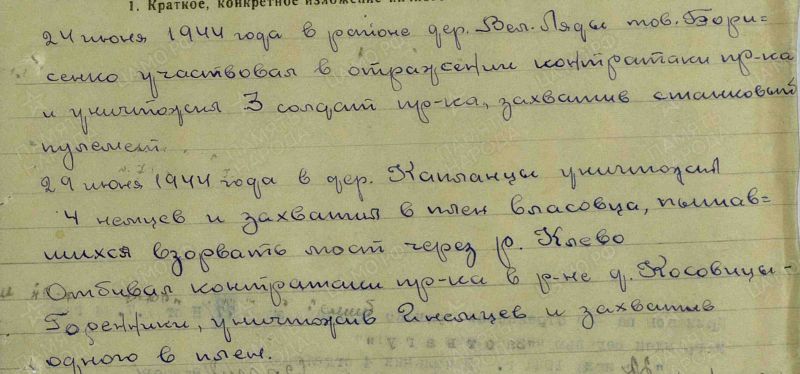 1. Краткое, конкретное изложение
24 июня 1944 года в районе дер. Вел. Ляды тов. Бори=
сенко участвовал в отражении контратаки пр-ка
и уничтожил 3 солдат пр-ка, захватив станковый
пулемет.
29 июня 1944 года в дер. Капланцы уничтожил
4 немцев и захватил в плен власовца, пытав=
шихся взорвать мост через р. Клево
Отбивал контратаки пр-ка в р-не д. Косовицы-
Гореники, уничтожив 2 немцев и захватив
одного в плен.